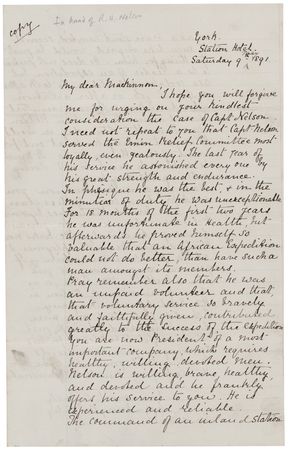 copy
In hand of R. H. Nelson
York.
Station Hotel.
Saturday 9th 1891
My dear Mackinnon.
I hope you will forgive
me for urging on your kindest
consideration the case of Capt Nelson
I need not repeat to you that Capt Nelson
served the Emin Relief Committee most
loyally, even zealously. The last year of
his service he astonished every one by
his great strength and endurance.
In physique he was the best, & in the
minutiae of duty he was unexceptionable
For 18 months of the first two years
he was unfortunate in Health, but
afterwards he proved himself so
valuable that an African Expedition
could not do better, than have such a
man amongst its members.
Pray remember also that he was
an unpaid volunteer and that
that voluntary service so bravely
and faithfully given, contributed
greatly to the success of the expedition
You are now President of a most
important company, which requires
healthy, willing devoted men.
Nelson is willing, brave, healthy,
and devoted and he frankly
offers his service to you. He is
experienced and reliable.
The command of an inland Station